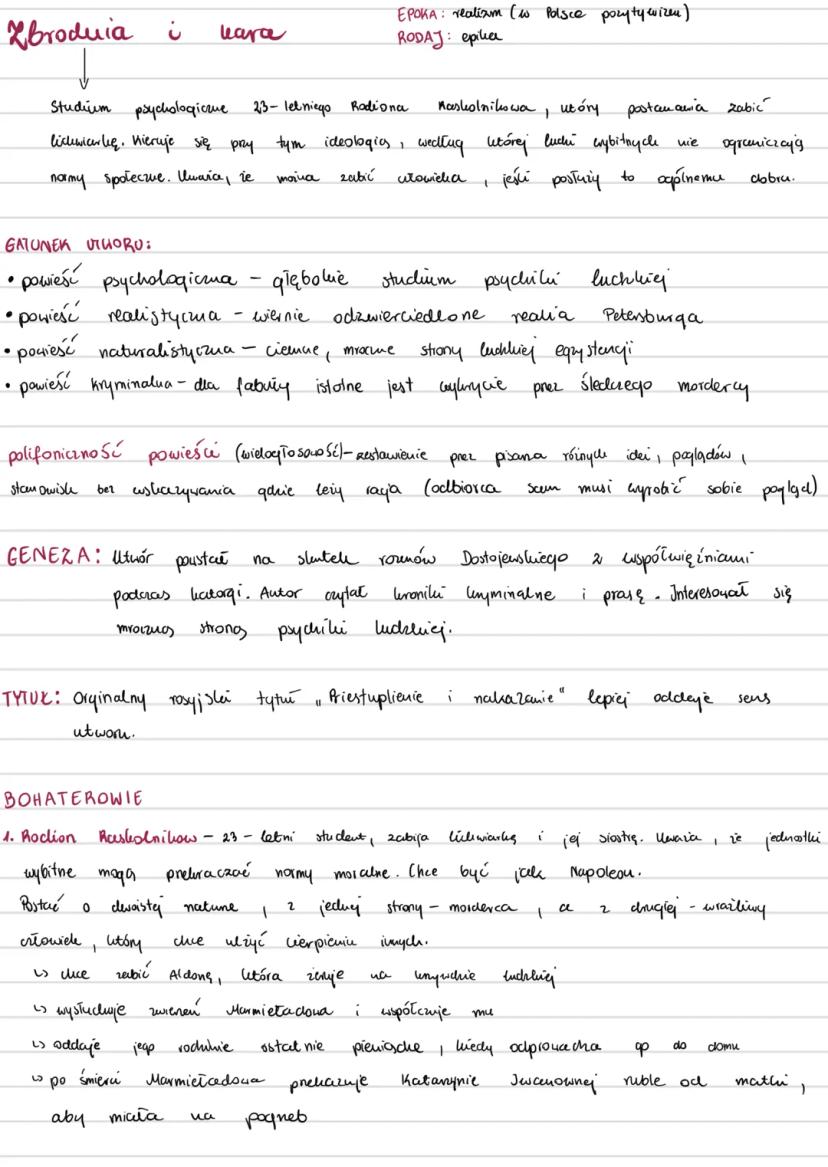 Zbrodnia i kara
EPOKA: realizm (w Polsce pozytywizm)
RODZAJ: epika
Studium psychologiczne 23-letniego Rodiona Raskolnikowa, który postanawia zabić
lichwiarkę. Kieruje się przy tym ideologią, według której ludzi wybitnych nie ograniczają
normy społeczne. Uważa, że można zabić człowieka, jeśli posłuży to ogólnemu dobru.
GATUNEK UTWORU:
• powieść psychologiczna – głębokie studium psychiki ludzkiej
• powieść realistyczna – wiernie odzwierciedlone realia Petersburga
• powieść naturalistyczna – ciemne, mroczne strony ludzkiej egzystencji
• powieść kryminalna – dla fabuły istotne jest wykrycie przez śledczego mordercy
polifoniczność powieści (wielogłosowość) – zestawienie przez pisarza różnych idei, poglądów,
stanowisk bez wskazywania gdzie leży racja (odbiorca sam musi wyrobić sobie pogląd)
GENEZA: Utwór powstał na skutek rozmów Dostojewskiego z współwięźniami
podczas katorgi. Autor czytał kroniki kryminalne i prasę. Interesował się
mroczną stroną psychiki ludzkiej.
TYTUŁ: Orginalny rosyjski tytuł „Priestuplienie i nakazanie" lepiej oddaje sens
utworu.
BOHATEROWIE
1. Rodion Raskolnikow – 23-letni student, zabija lichwiarkę i jej siostrę. Uważa, że jednostki
wybitne mogą przekraczać normy moralne. Chce być jak Napoleon.
Postać o dwoistej naturze, z jednej strony – morderca, a z drugiej – wrażliwy
człowiek, który chce ulżyć cierpieniu innych.
↳ chce zabić Aldonę, która żeruje na krzywdzie ludzkiej
↳ wysłuchuje zwierzeń Marmieładowa i współczuje mu
↳ oddaje jego rodzinie ostatnie pieniądze, kiedy odprowadza go do domu
↳ po śmierci Marmieładowa przekazuje Katarzynie Iwanownej ruble od matki,
aby miała na pogrzeb